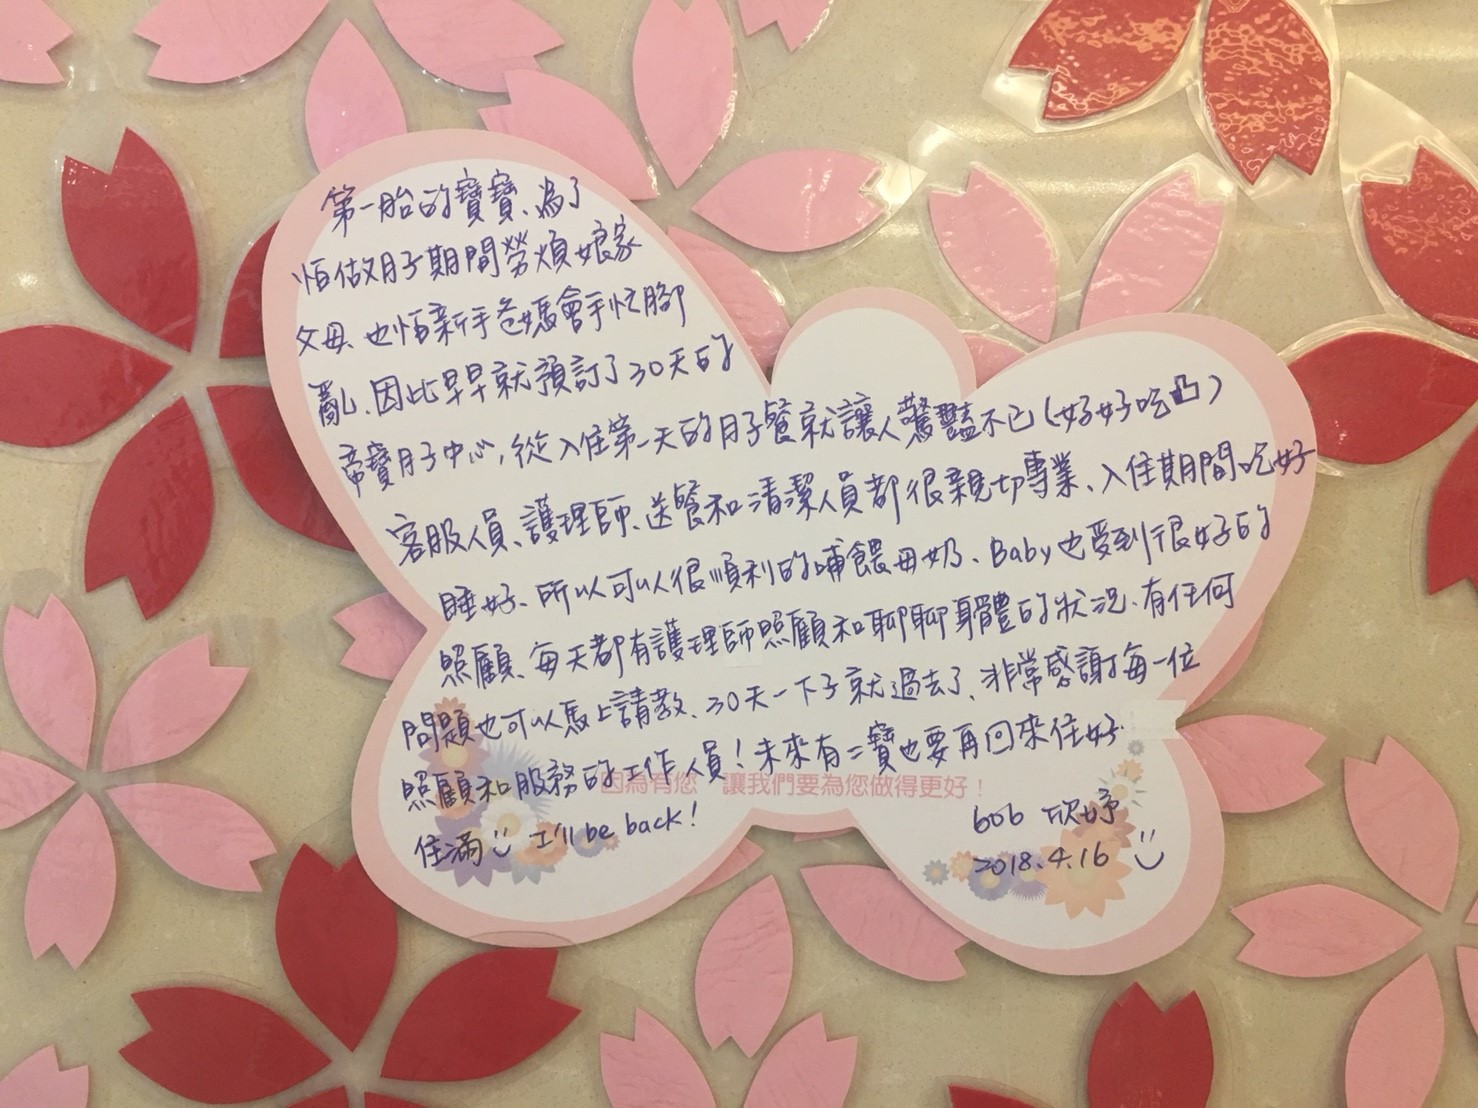 第一胎的寶寶、為了
怕做月子期間勞煩娘家
父母、也怕新手爸媽會手忙腳
亂、因此早早就預訂了30天的
帝寶月子中心,從入住第一天的月子餐就讓人驚豔不已(好好吃)
客服人員、護理師、送餐和清潔人員都很親切專業、入住期間吃好
睡好、所以可以很順利的哺餵母奶、Baby也受到很好的
照顧、每天都有護理師照顧和聊聊身體的狀況、有任何
問題也可以馬上請教、30天一下子就過去了、非常感謝每一位
照顧和服務的工作人員!未來有二寶也要再回來住好
因為有您 讓我們要為您做得更好!
住滿 I'll be back!
606 欣妤
2018.4.16